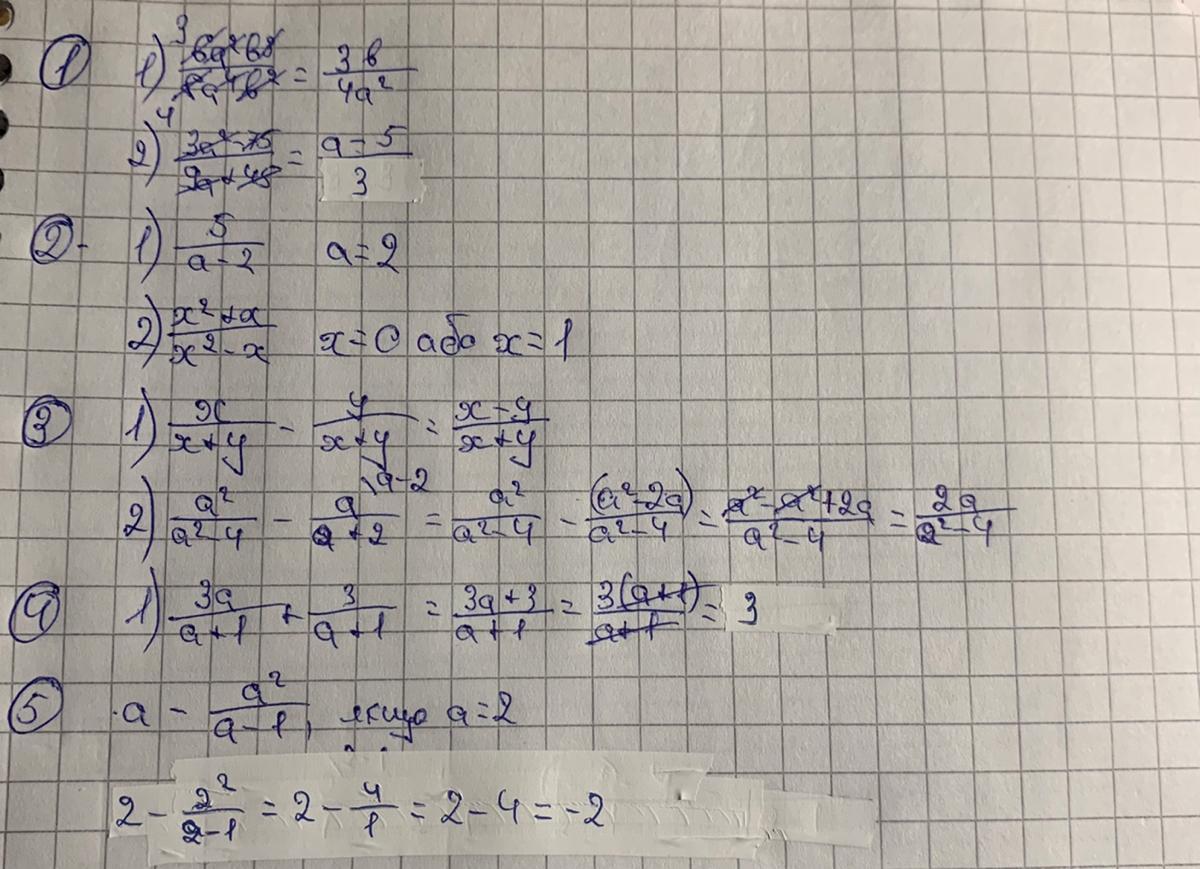 ① 1) 6a²b³/8a⁴b² = 3b/4a²
2) 3a²-75/9a+45 = a-5/3
②- 1) 5/a-2 a=2
2) x²+x/x²-x x=0 або x=1
③ 1) x/x+y - y/x+y = x-y/x+y
2) a²/a²-4 - a\a-2/a+2 = a²/a²-4 - (a²-2a)/a²-4 = a²-a²+2a/a²-4 = 2a/a²-4
④ 1) 3a/a+1 + 3/a+1 = 3a+3/a+1 = 3(a+1)/a+1 = 3
⑤ .a - a²/a-1, якщо a=2
2 - 2²/2-1 = 2 - 4/1 = 2-4 = -2